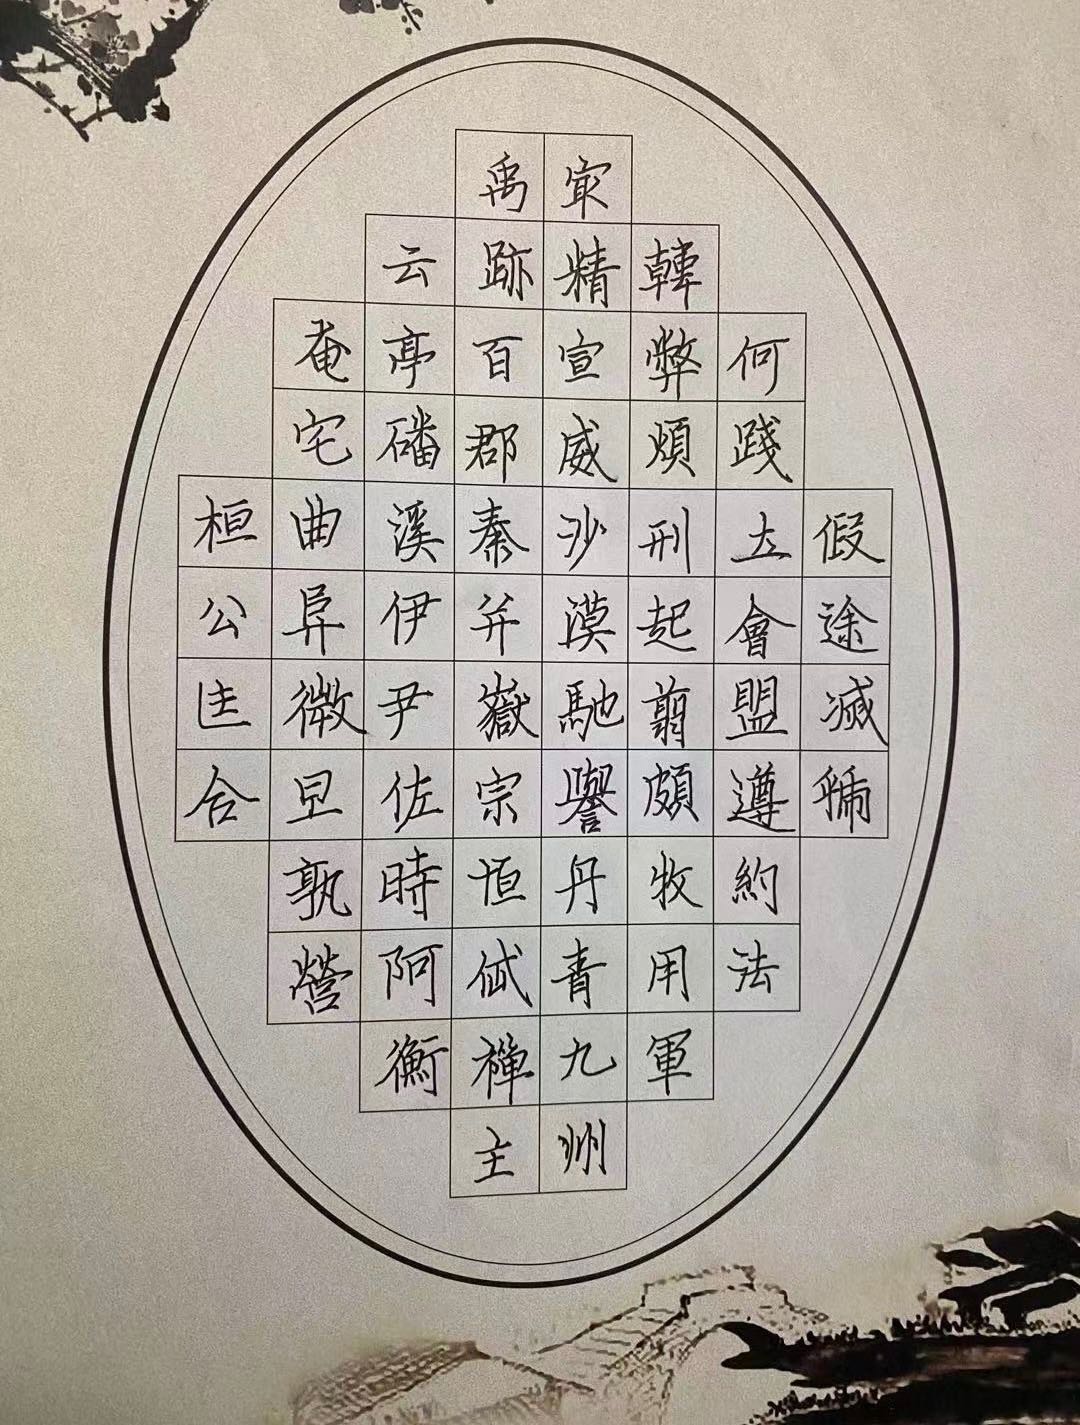 假途滅虢
何踐土會盟遵約法
韓弊煩刑起翦頗牧用軍
㝡精宣威沙漠馳譽丹青九州
禹跡百郡秦并嶽宗恒岱禪主
云亭磻溪伊尹佐時阿衡
奄宅曲阜微旦孰營
桓公匡合